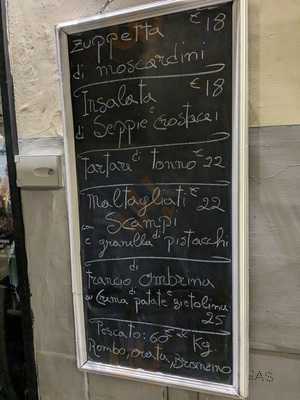 Zuppetta € 18
di moscardini
Insalata € 18
di Seppie e crostacei
Tartare di tonno € 22
Maltagliati € 22
con Scampi
e granella di pistacchi
Trancio di Ombrina
con Crema di patate e zietolina
25
Pescato: 60 € Kg.
Rombo, orata,